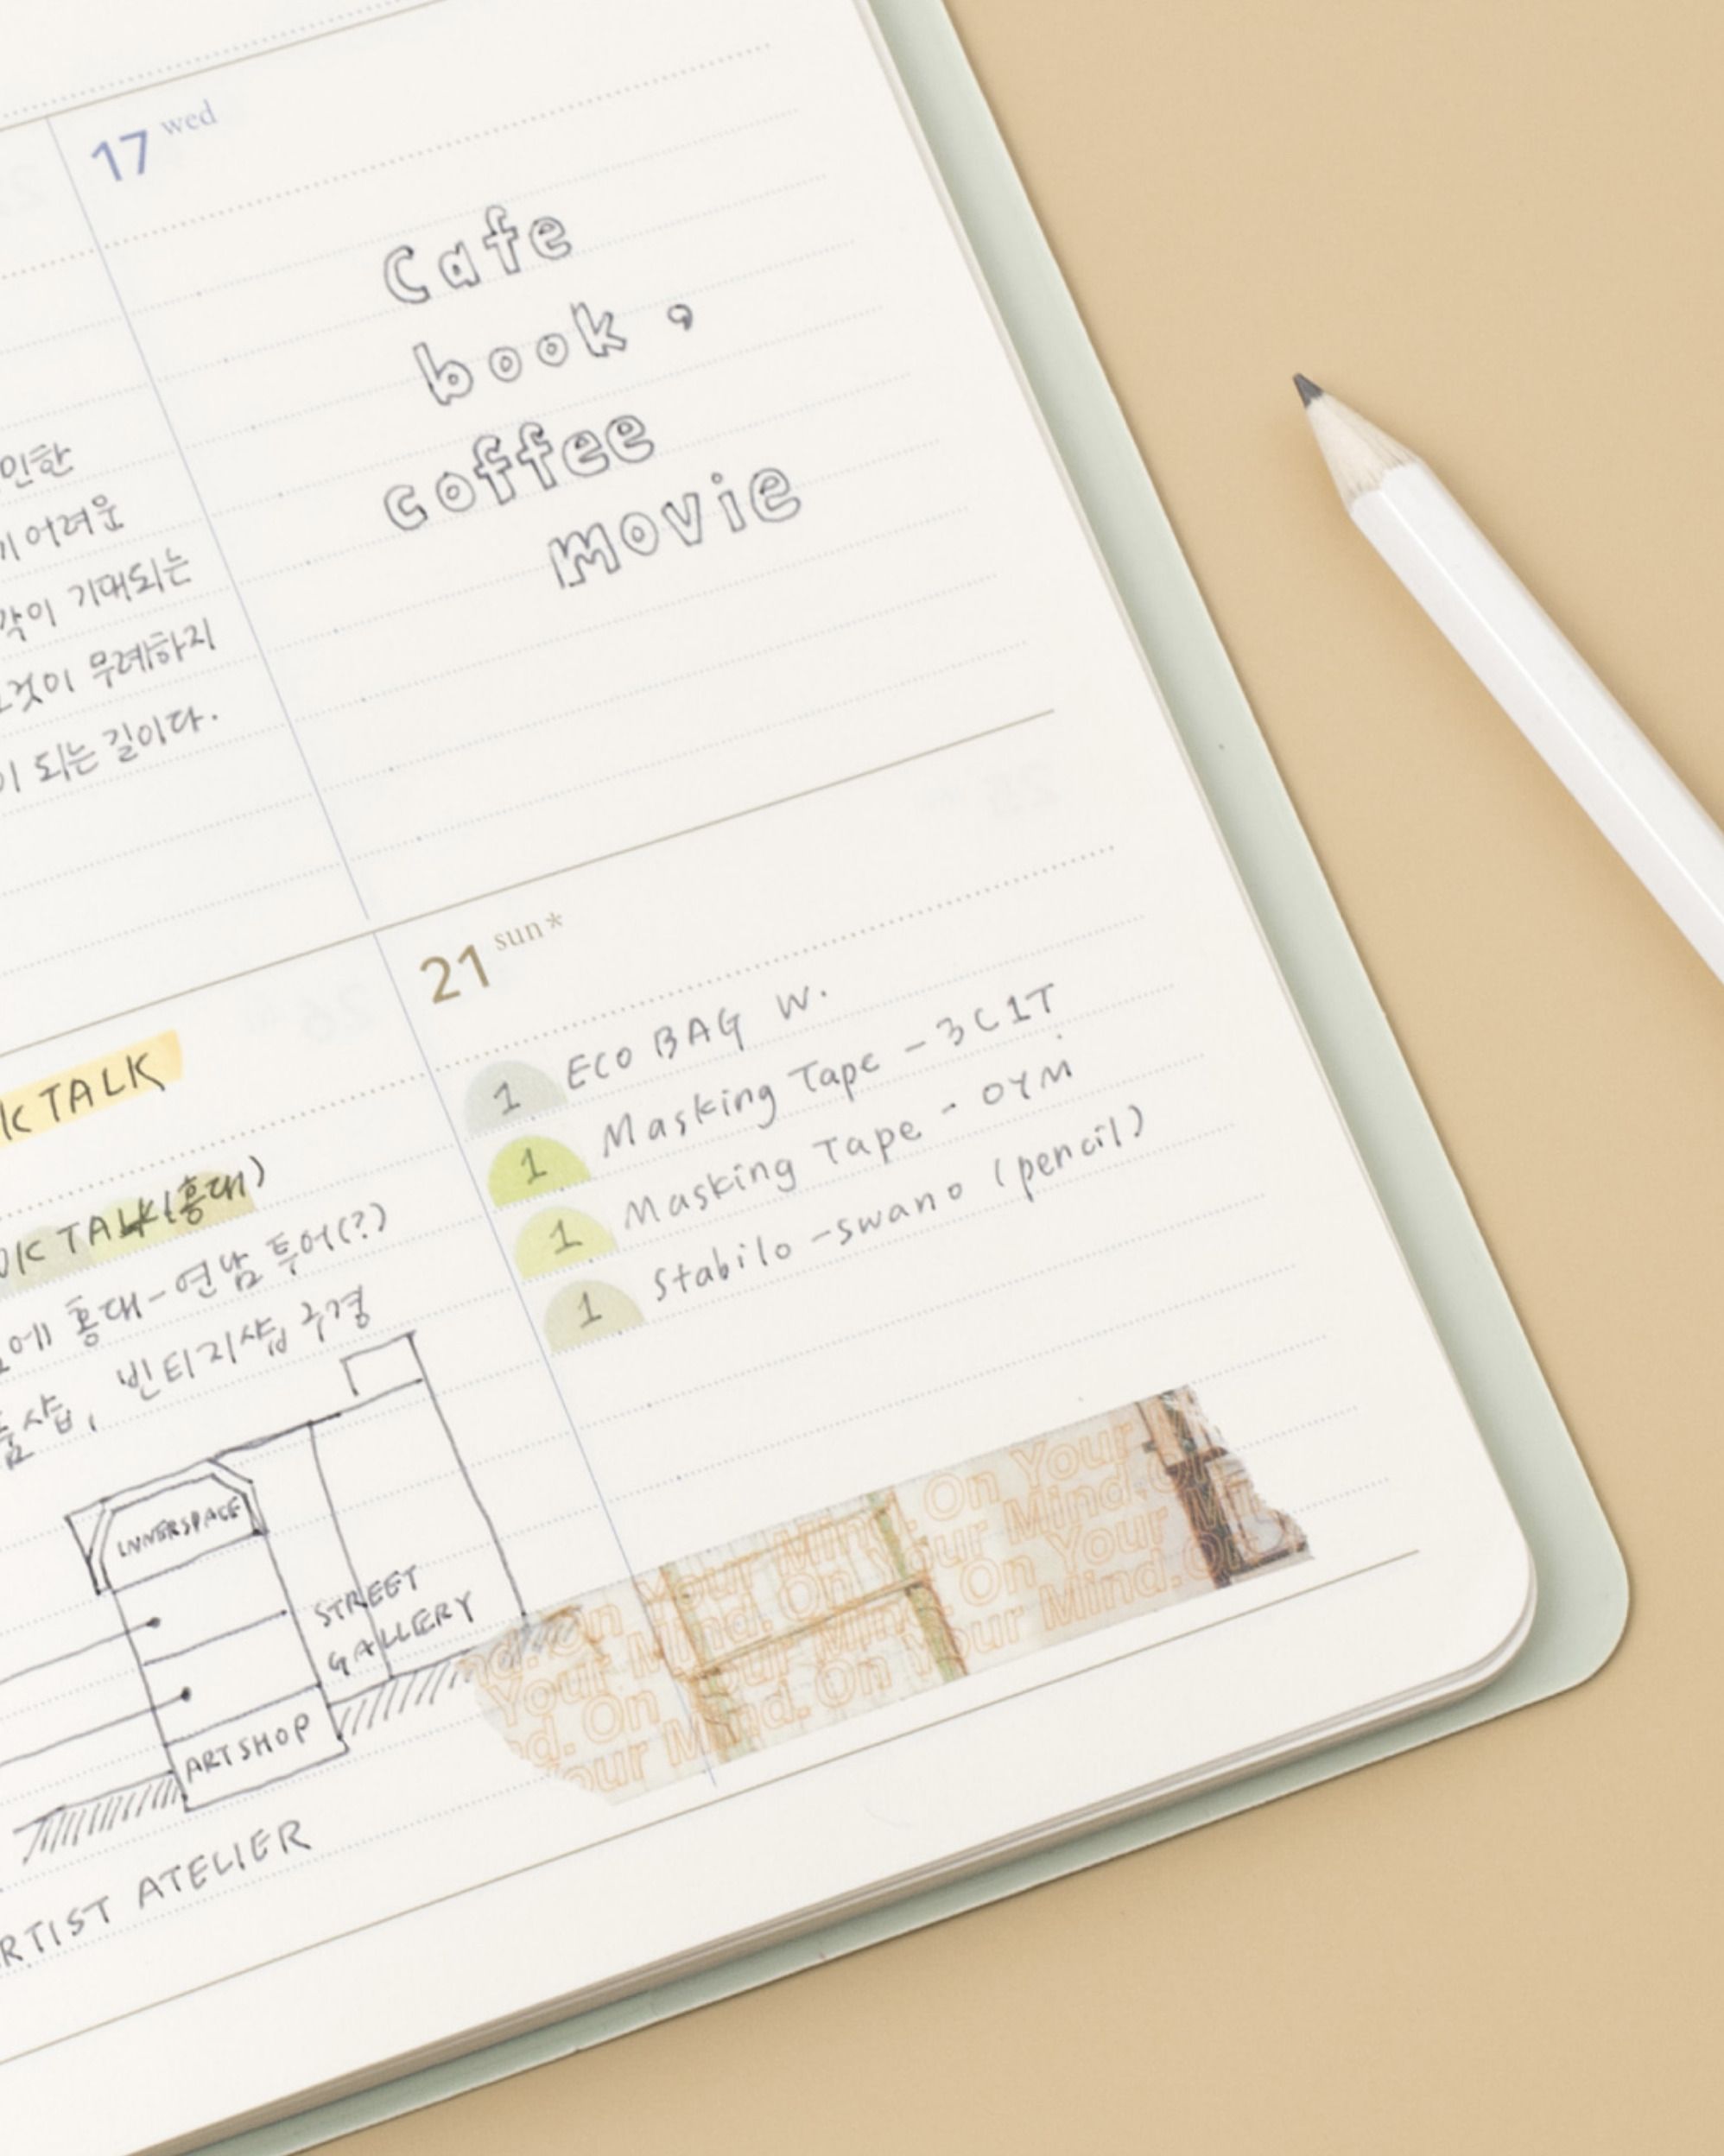 17 wed
Cafe
book ,
coffee
movie
인한
어려운
기대되는
무례하지
되는 길이다.
TALK
TALK (홍대)
홍대-연남 투어(?)
빈티지샵 구경
INNERSPACE
STREET
GALLERY
ARTSHOP
ATELIER
21 sun*
1 ECO BAG W.
1 Masking Tape - 3C1T
1 Masking Tape - OYM
1 Stabilo - swano (pencil)
Mind. On Your
Your Mind. On Your Mind. On
Your Mind. On Your
Mind. On Your Mind. On